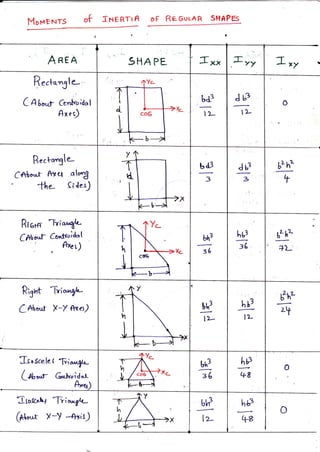 MOMENTS of INERTIA OF REGULAR SHAPES
AREA SHAPE Ixx Iyy Ixy
Rectangle
(About Centroidal
Axes)
Yc
d
Xc
COG
b
bd³/12
db³/12
0
Rectangle
(About Axes along
the Sides)
Y
d
b
X
bd³/3
db³/3
b²h²/4
Right Triangle
(About Centroidal
Axes)
Yc
h
COG
Xc
b
bh³/36
hb³/36
b²h²/72
Right Triangle
(About X-Y Axes)
Y
h
b
X
bh³/12
hb³/12
b²h²/24
Isosceles Triangle
(About Centroidal
Axes)
Yc
h
COG
Xc
b
bh³/36
hb³/48
0
Triangle
(About X-Y Axis)
Y
h
b
X
bh³/12
hb³/48
0